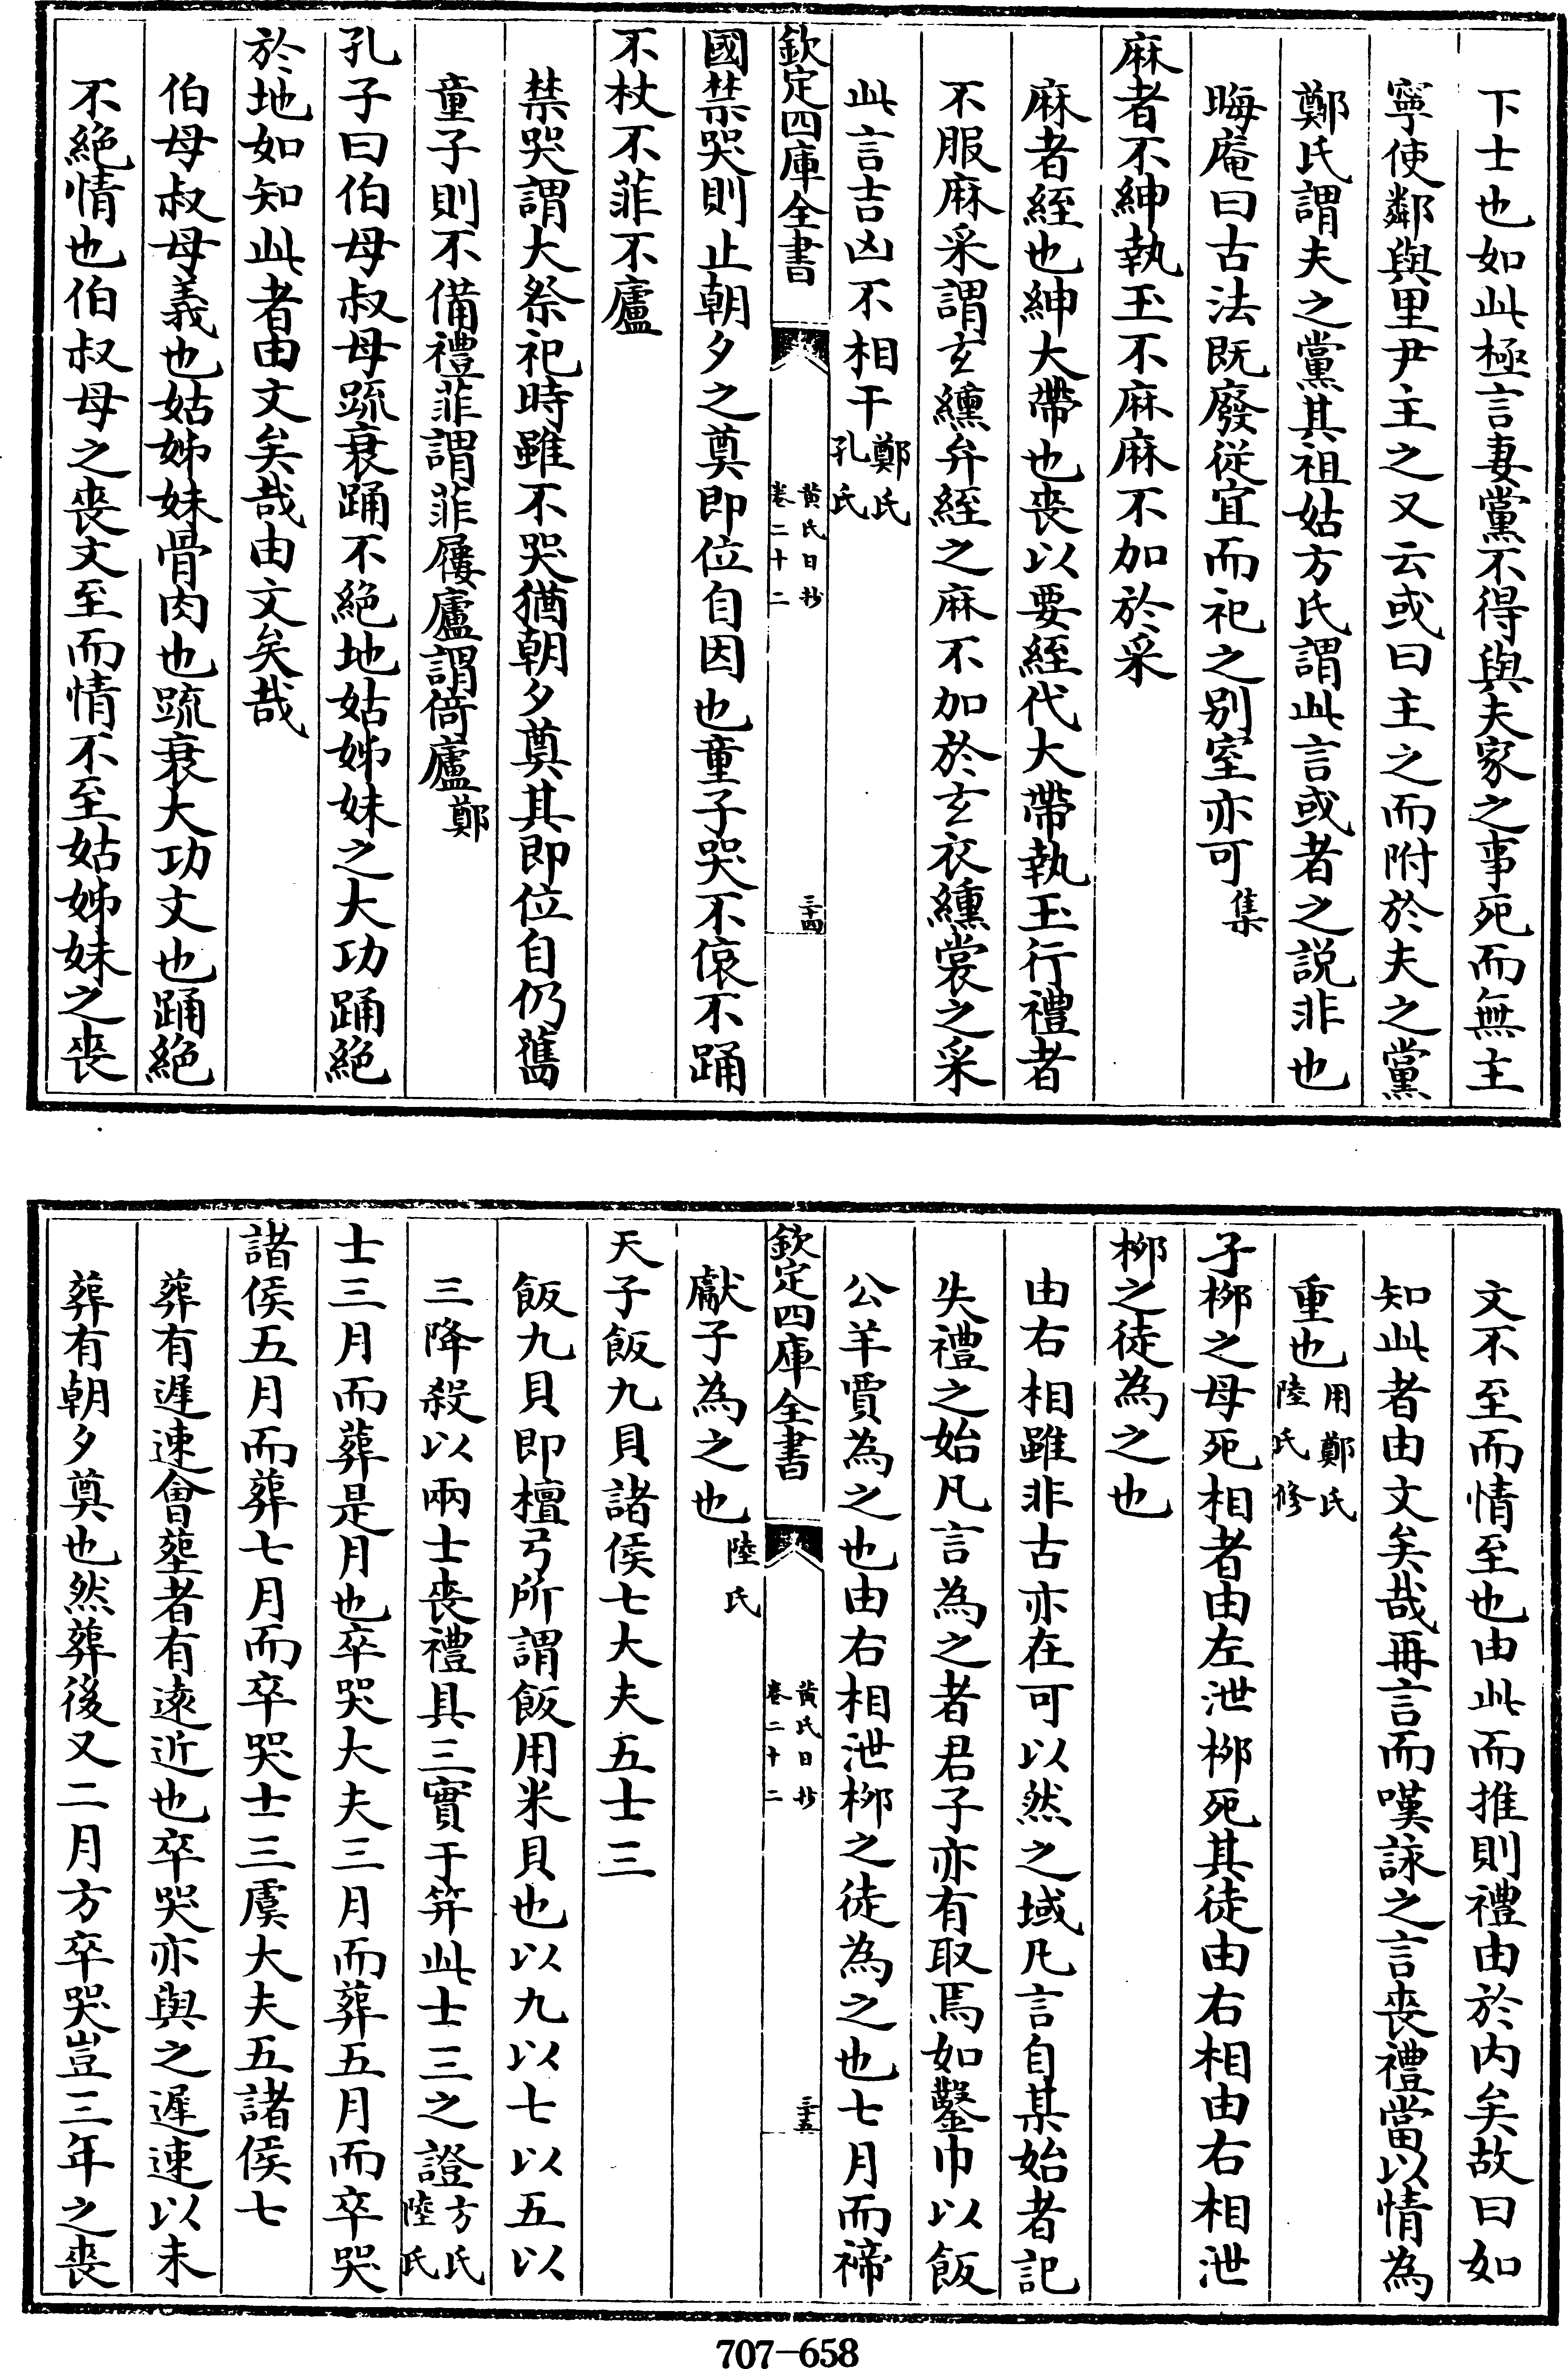 下士也如此極言妻黨不得與夫家之事死而無主
寧使鄰與里尹主之又云或曰主之而附於夫之黨
鄭氏謂夫之黨其祖姑方氏謂此言或者之説非也
晦庵曰古法既廢從宜而祀之别室亦可集
麻者不紳執玉不麻麻不加於采
麻者絰也紳大帶也喪以要絰代大帶執玉行禮者
不服麻采謂玄纁弁絰之麻不加於玄衣纁裳之采
此言吉凶不相干鄭氏孔氏
欽定四庫全書
黄氏日抄
卷二十二
三十四
國禁哭則止朝夕之奠即位自因也童子哭不偯不踊
不杖不菲不廬
禁哭謂大祭祀時雖不哭猶朝夕奠其即位自仍舊
童子則不備禮菲謂菲屨廬謂倚廬鄭
孔子曰伯母叔母疏衰踊不絶地姑姊妹之大功踊絶
於地如知此者由文矣哉由文矣哉
伯母叔母義也姑姊妹骨肉也疏衰大功文也踊絶
不絶情也伯叔母之喪文至而情不至姑姊妹之喪
文不至而情至也由此而推則禮由於内矣故曰如
知此者由文矣哉再言而嘆詠之言喪禮當以情為
重也用鄭氏陸氏修
子桞之母死相者由左泄桞死其徒由右相由右相泄
桞之徒為之也
由右相雖非古亦在可以然之域凡言自某始者記
失禮之始凡言為之者君子亦有取焉如鑿巾以飯
公羊賈為之也由右相泄桞之徒為之也七月而禘
欽定四庫全書
黄氏日抄
卷二十二
三十五
獻子為之也陸氏
天子飯九貝諸侯七大夫五士三
飯九貝即檀弓所謂飯用米貝也以九以七以五以
三降殺以兩士喪禮具三實于笲此士三之證方氏陸氏
士三月而葬是月也卒哭大夫三月而葬五月而卒哭
諸侯五月而葬七月而卒哭士三虞大夫五諸侯七
葬有遲速會塟者有逺近也卒哭亦與之遲速以未
葬有朝夕奠也然葬後又二月方卒哭豈三年之喪
707-658